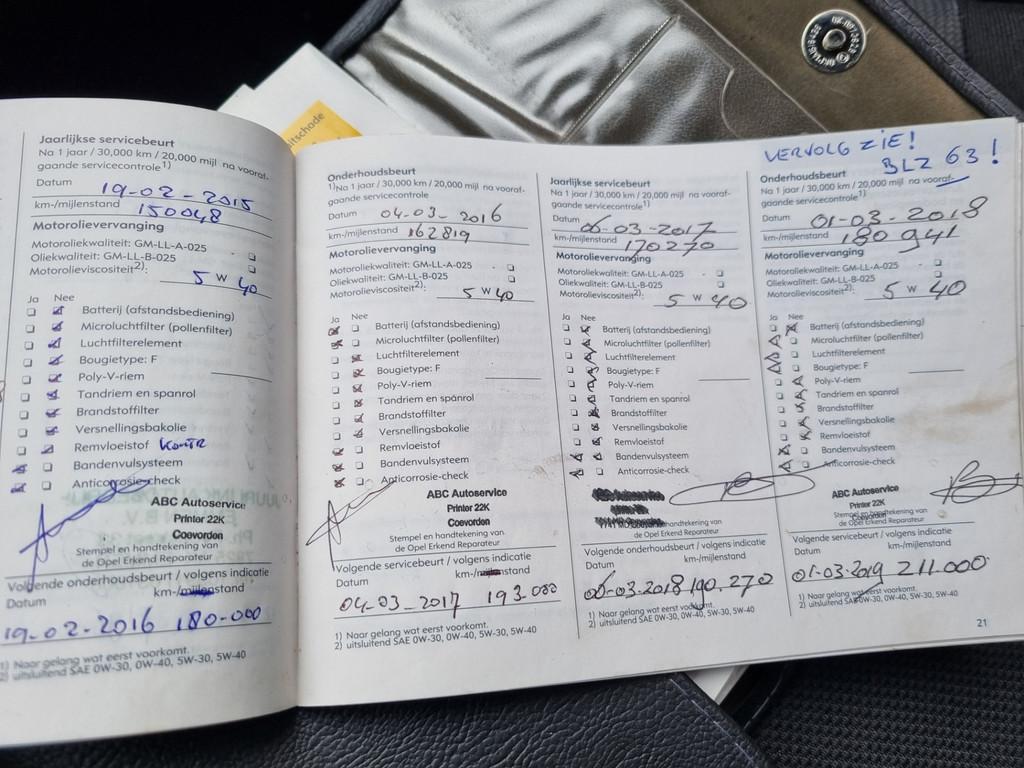 itschade
Jaarlijkse servicebeurt
Na 1 jaar / 30,000 km / 20,000 mijl na vooraf-
gaande servicecontrole1)
Datum 19-02-2015
km-/mijlenstand 150048
Motorolievervanging
Motoroliekwaliteit: GM-LL-A-025
Oliekwaliteit: GM-LL-B-025
Motorolieviscositeit2): 5 W 40
Ja Nee
Batterij (afstandsbediening)
Microluchtfilter (pollenfilter)
Luchtfilterelement
Bougietype: F
Poly-V-riem
Tandriem en spanrol
Brandstoffilter
Versnellingsbakolie
Remvloeistof KONTR
Bandenvulsysteem
Anticorrosie-check
ABC Autoservice
Printer 22K
Coevorden
Stempel en handtekening van
de Opel Erkend Reparateur
Volgende onderhoudsbeurt / volgens indicatie
Datum km-/mijlenstand
19-02-2016 180-000
1) Naar gelang wat eerst voorkomt.
2) uitsluitend SAE 0W-30, 0W-40, 5W-30, 5W-40
Onderhoudsbeurt
1)Na 1 jaar / 30,000 km / 20,000 mijl na vooraf-
gaande servicecontrole
Datum 04-03-2016
km-/mijlenstand 162819
Motorolievervanging
Motoroliekwaliteit: GM-LL-A-025
Oliekwaliteit: GM-LL-B-025
Motorolieviscositeit2): 5 W 40
Ja Nee
Batterij (afstandsbediening)
Microluchtfilter (pollenfilter)
Luchtfilterelement
Bougietype: F
Poly-V-riem
Tandriem en spanrol
Brandstoffilter
Versnellingsbakolie
Remvloeistof
Bandenvulsysteem
Anticorrosie-check
ABC Autoservice
Printer 22K
Coevorden
Stempel en handtekening van
de Opel Erkend Reparateur
Volgende servicebeurt / volgens indicatie
Datum km-/mijlenstand
04-03-2017 193-000
1) Naar gelang wat eerst voorkomt.
2) uitsluitend SAE 0W-30, 0W-40, 5W-30, 5W-40
Jaarlijkse servicebeurt
Na 1 jaar / 30,000 km / 20,000 mijl na vooraf-
gaande servicecontrole1)
Datum 06-03-2017
km-/mijlenstand 170270
Motorolievervanging
Motoroliekwaliteit: GM-LL-A-025
Oliekwaliteit: GM-LL-B-025
Motorolieviscositeit2): 5 W 40
Ja Nee
Batterij (afstandsbediening)
Microluchtfilter (pollenfilter)
Luchtfilterelement
Bougietype: F
Poly-V-riem
Tandriem en spanrol
Brandstoffilter
Versnellingsbakolie
Remvloeistof
Bandenvulsysteem
Anticorrosie-check
handtekening van
de Opel Erkend Reparateur
Volgende onderhoudsbeurt / volgens indicatie
Datum km-/mijlenstand
06-03-2018 190.270
1) Naar gelang wat eerst voorkomt.
2) uitsluitend SAE 0W-30, 0W-40, 5W-30, 5W-40
VERVOLG ZIE!
BLZ 63!
Onderhoudsbeurt
Na 1 jaar / 30,000 km / 20,000 mijl na vooraf-
gaande servicecontrole1)
Datum 01-03-2018
km-/mijlenstand 180941
Motorolievervanging
Motoroliekwaliteit: GM-LL-A-025
Oliekwaliteit: GM-LL-B-025
Motorolieviscositeit2): 5 W 40
Ja Nee
Batterij (afstandsbediening)
Microluchtfilter (pollenfilter)
Luchtfilterelement
Bougietype: F
Poly-V-riem
Tandriem en spanrol
Brandstoffilter
Versnellingsbakolie
Remvloeistof
Bandenvulsysteem
Anticorrosie-check
ABC Autoservice
Printer 22K
Coevorden
Stempel en handtekening van
de Opel Erkend Reparateur
Volgende servicebeurt / volgens indicatie
Datum km-/mijlenstand
01-03-2019 211.000
1) Naar gelang wat eerst voorkomt.
2) uitsluitend SAE 0W-30, 0W-40, 5W-30, 5W-40
21